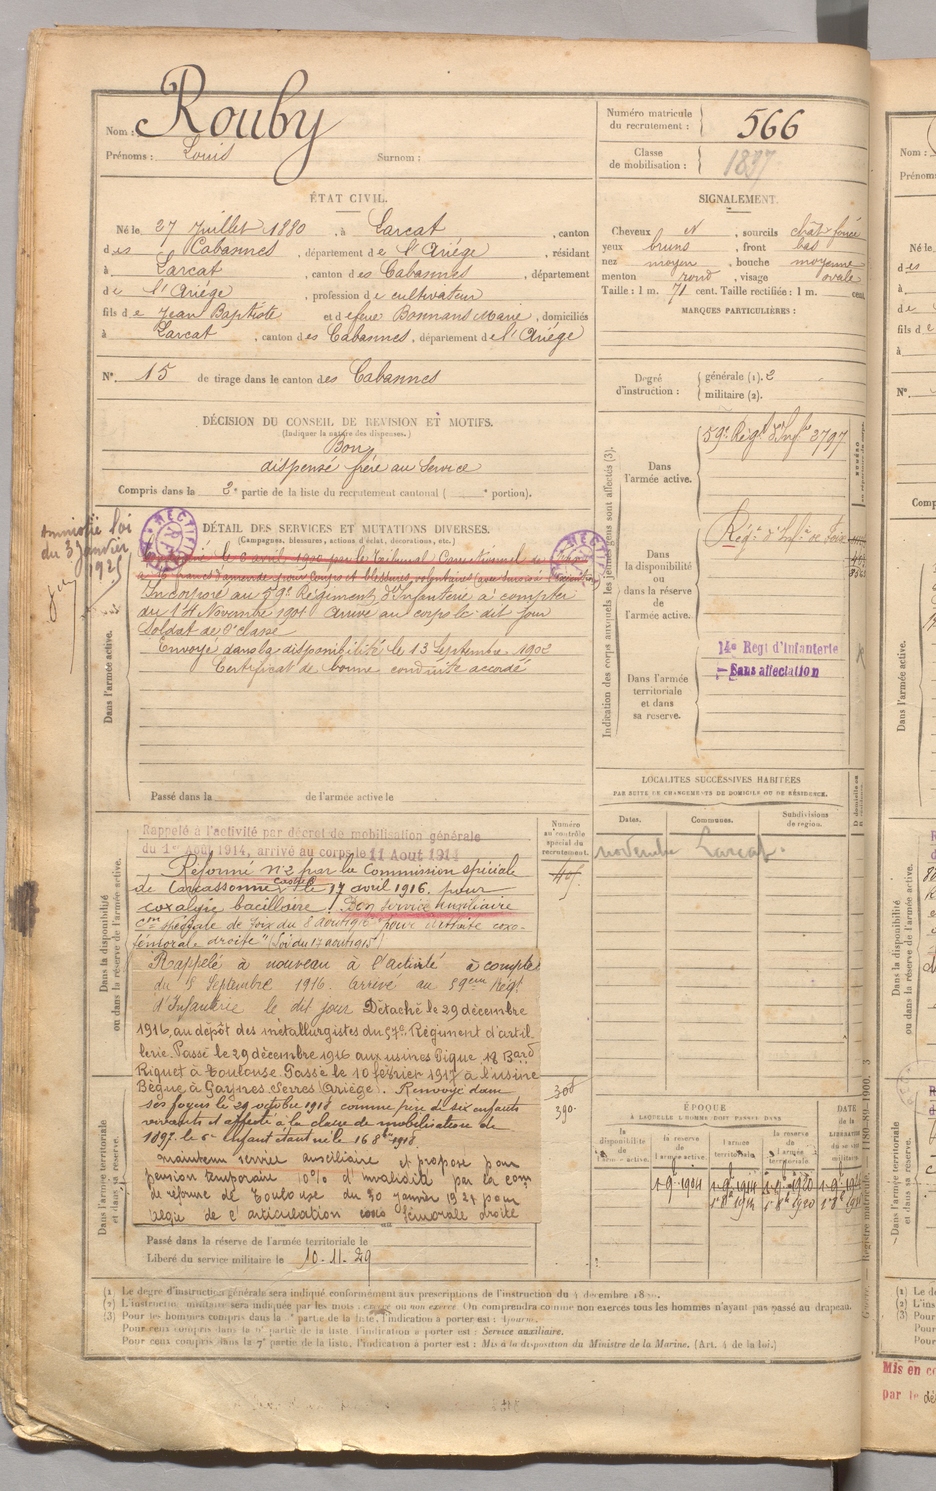 Nom : Rouby
Prénoms : Louis Surnom :
Numéro matricule du recrutement : 566
Classe de mobilisation : 1897
ÉTAT CIVIL.
Né le 27 Juillet 1880, à Larcat, canton
des Cabannes, département de l'Ariége, résidant
à Larcat, canton des Cabannes, département
de l'Ariége, profession de cultivateur
fils de Jean Baptiste et de feue Bonnans Marie, domiciliés
à Larcat, canton des Cabannes, département de l'Ariége
N° 15 de tirage dans le canton des Cabannes
SIGNALEMENT.
Cheveux N, sourcils chât foncé
yeux bruns, front bas
nez moyen, bouche moyenne
menton rond, visage ovale
Taille : 1 m. 71 cent. Taille rectifiée : 1 m. cent.
MARQUES PARTICULIÈRES :
Degré d'instruction : générale (1). 2
militaire (2).
DÉCISION DU CONSEIL DE REVISION ET MOTIFS.
(Indiquer la nature des dispenses.)
Bon
dispensé frère au Service
Compris dans la 2e partie de la liste du recrutement cantonal ( e portion).
DÉTAIL DES SERVICES ET MUTATIONS DIVERSES.
(Campagnes, blessures, actions d'éclat, décorations, etc.)
Amnistié loi
du 3 Janvier
1925
le 3 avril 1900 par le Tribunal Correctionnel de
à 15 francs d'amende pour Coups et blessures volontaires
Incorporé au 59e Régiment d'Infanterie à compter
du 14 Novembre 1901 Arrivé au corps le dit jour
Soldat de 2e classe
Envoyé dans la disponibilité le 13 Septembre 1902
Certificat de bonne conduite accordé
Dans l'armée active.
Passé dans la de l'armée active le
Indication des corps auxquels les jeunes gens sont affectés (3).
Dans l'armée active.
59e Régt d'Infie 3797
Dans la disponibilité ou dans la réserve de l'armée active.
Régt d'Infie de Foix
Dans l'armée territoriale et dans sa réserve.
14e Régt d'Infanterie
Sans affectation
LOCALITÉS SUCCESSIVES HABITÉES
PAR SUITE DE CHANGEMENTS DE DOMICILE OU DE RÉSIDENCE.
Dates. Communes. Subdivisions de région.
novembre Larcat
Dans la disponibilité ou dans la réserve de l'armée active.
Numéro au contrôle spécial du recrutement.
Rappelé à l'activité par décret de mobilisation générale
du 1er Août 1914, arrivé au corps le 11 Aout 1914
Réformé n°2 par la Commission spéciale
de Carcassonne le 17 avril 1916. pour
coxalgie bacillaire. Bon service Auxiliaire
Con spéciale de Foix du 8 aout 1916 pour "arthrite coxo-
fémorale droite" (Loi du 17 aout 1915)
Rappelé à nouveau à l'activité à compter
du 5 Septembre 1916. arrivé au 59eme Régt
d'Infanterie le dit jour Détaché le 29 décembre
1916, au dépôt des métallurgistes du 57e Régiment d'artil
lerie. Passé le 29 décembre 1916 aux usines Pique 18 Bard
Riquet à Toulouse. Passé le 10 février 1917 à l'usine
Bègue à Garynes Serres (Ariège). Renvoyé dans
ses foyers le 29 octobre 1918 comme père de six enfants
vivants et affecté à la classe de mobilisation de
1897. le 6e enfant étant né le 16 8bre 1918
maintenu service auxiliaire et proposé pour
pension temporaire 10% d'invalidité par la com
de réforme de Toulouse du 30 janvier 1924 pour
de l'articulation coxo fémorale droite
308
390
Dans l'armée territoriale et dans sa réserve.
Passé dans la réserve de l'armée territoriale le
Libéré du service militaire le 10-11-29
ÉPOQUE
A LAQUELLE L'HOMME DOIT PASSER DANS
la disponibilité de l'armée active. la réserve de l'armée active. l'armée territoriale. la réserve de l'armée territoriale. DATE de la LIBÉRATION du service militaire
(1) Le degré d'instruction générale sera indiqué conformément aux prescriptions de l'instruction du 4 décembre 1889.
(2) L'instruction militaire sera indiquée par les mots : exercé ou non exercé. On comprendra comme non exercés tous les hommes n'ayant pas passé au drapeau.
(3) Pour les hommes compris dans la partie de la liste, l'indication à porter est : Ajourné.
Pour ceux compris dans la partie de la liste, l'indication à porter est : Service auxiliaire.
Pour ceux compris dans la 7e partie de la liste, l'indication à porter est : Mis à la disposition du Ministre de la Marine. (Art. 4 de la loi.)